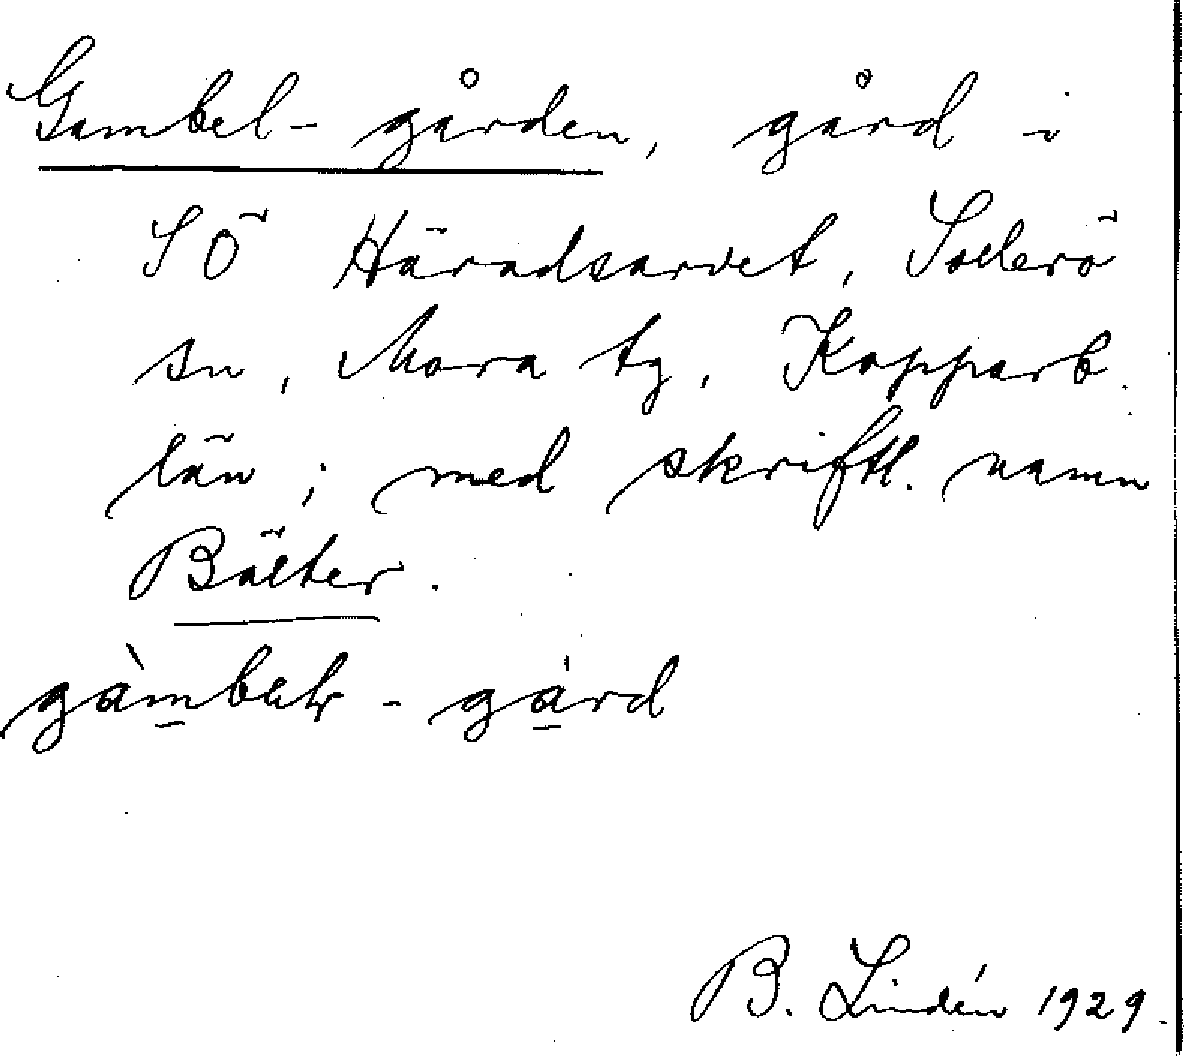 Gambel-gården, gård i
SÖ Häradsarvet, Sollerö
sn, Mora tg, Kopparb.
län; med skriftl. namn
Bälter.
gàmbel-gárd
B. Lindén 1929.